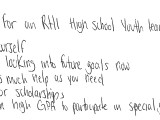 For our RHII High school Youth lea
urself
looking into future goals now
s much help as you need
or scholarships
n high GPA to participate in special,